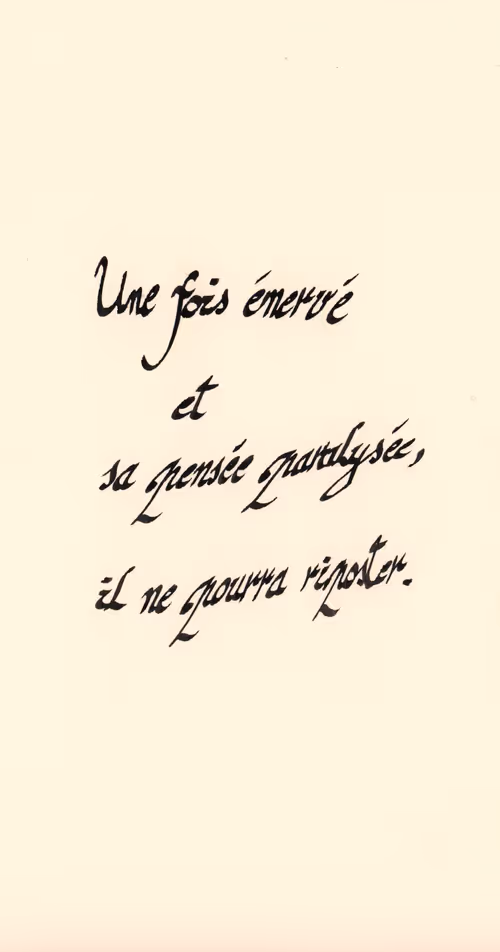 Une fois énervé
et
sa pensée paralysée,
il ne pourra riposter.